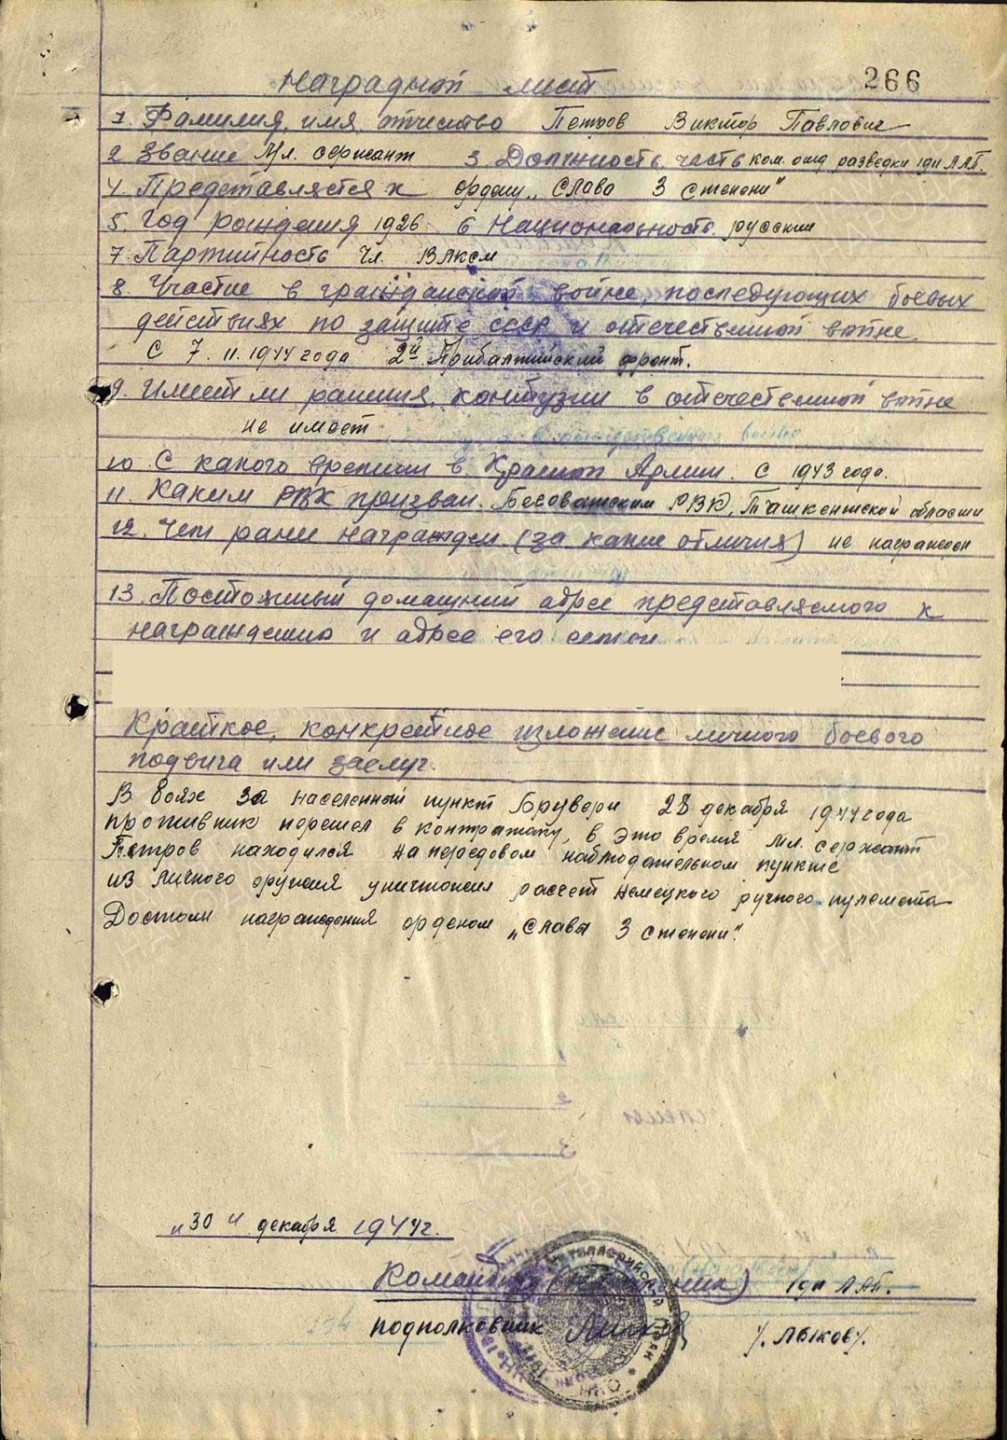 Наградной лист 266
1. Фамилия, имя, отчество Петров Виктор Павлович
2 Звание Мл. сержант 3 Должность, часть ком. отд. разведки
4. Представляется к ордену „Слава 3 степени"
5. Год рождения 1926 6 Национальность русский
7. Партийность Чл. ВЛКСМ
8. Участие в гражданской войне, последующих боевых
действиях по защите СССР и отечественной войне.
С 7. 11. 1944 года 2й Прибалтийский фронт.
9. Имеет ли ранения, контузии в отечественной войне
не имеет
10 С какого времени в Красной Армии. С 1943 года.
11. Каким РВК призван. РВК, Ташкентской области
12. Чем ранее награжден (за какие отличия) не награжден
13. Постоянный домашний адрес представляемого к
награждению и адрес его семьи
Краткое, конкретное изложение личного боевого
подвига или заслуг.
В боях за населенный пункт Брувери 28 декабря 1944 года
противник перешел в контратаку, в это время мл. сержант
Петров находился на передовом наблюдательном пункте
из личного оружия уничтожил расчет немецкого ручного пулемета
Достоин награждения орденом „Славы 3 степени".
„30" декабря 1944г.
Командир (начальник) ААП.
подполковник /Лыков/.